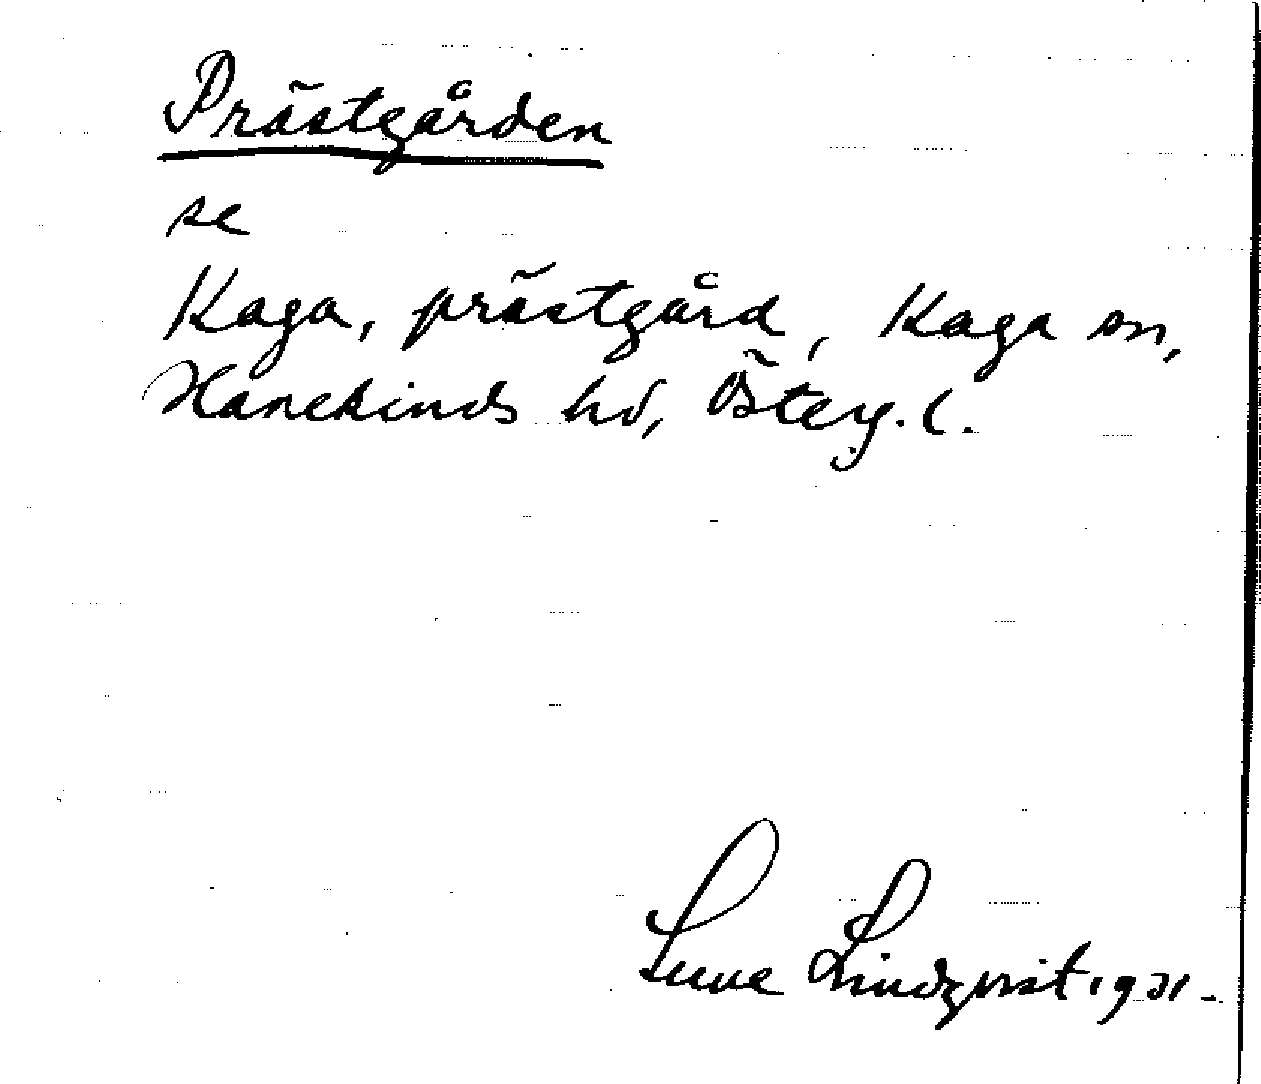 Prästgården
se
Kaga, prästgård, Kaga sn,
Hanekinds hd, Österg. l.
Sune Lindqvist 1931.